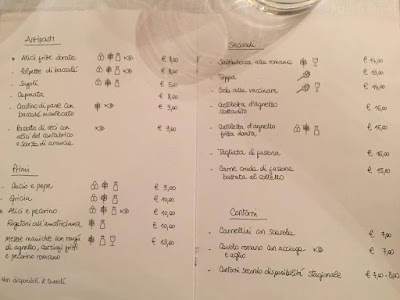 Antipasti
Alici fritte dorate € 8,00
Polpette di baccalà € 8,00
Supplì € 5,00
Caponata € 8,00
Crostino di pane con € 9,00
baccalà mantecato
Puntarelle con
alici del cantabrico € 9,00
e scorza di arancia
Primi
Cacio e pepe € 9,00
Gricia € 10,00
Alici e pecorino € 10,00
Rigatoni all'amatriciana € 10,00
Mezze maniche con ragù
di agnello, carciofi fritti € 13,00
e pecorino romano
Non disponibili il lunedì
Secondi
Saltimbocca alla romana € 14,00
Trippa € 13,00
Coda alla vaccinara € 14,00
Costoletta d'agnello € 15,00
scottadito
Costoletta d'agnello € 16,00
fritta dorata
Tagliata di fassona € 16,00
Carne cruda di fassona € 15,00
battuta al coltello
Contorni
Cannellini con scarola € 7,00
Cavolo romano con acciuga € 7,00
e aglio
Contorni secondo disponibilità stagionale € 7,00-8,00